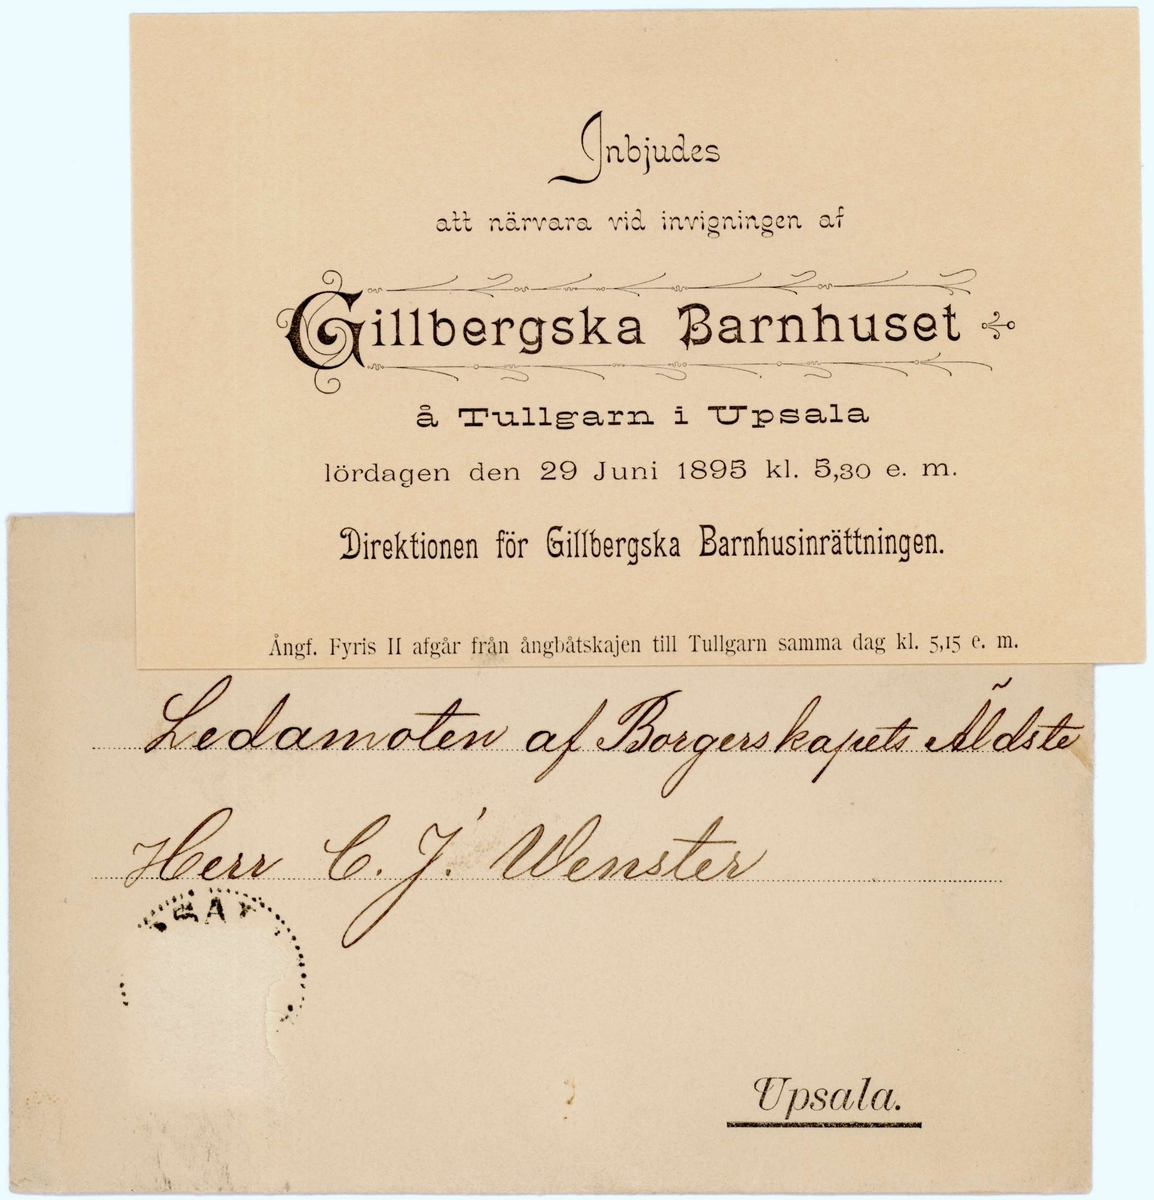 Inbjudes
att närvara vid invigningen af
Gillbergska Barnhuset
å Tullgarn i Upsala
lördagen den 29 Juni 1895 kl. 5,30 e. m.
Direktionen för Gillbergska Barnhusinrättningen.
Ångf. Fyris II afgår från ångbåtskajen till Tullgarn samma dag kl. 5,15 e. m.
Ledamoten af Borgerskapets Äldste
Herr C. J. Wenster
Upsala.